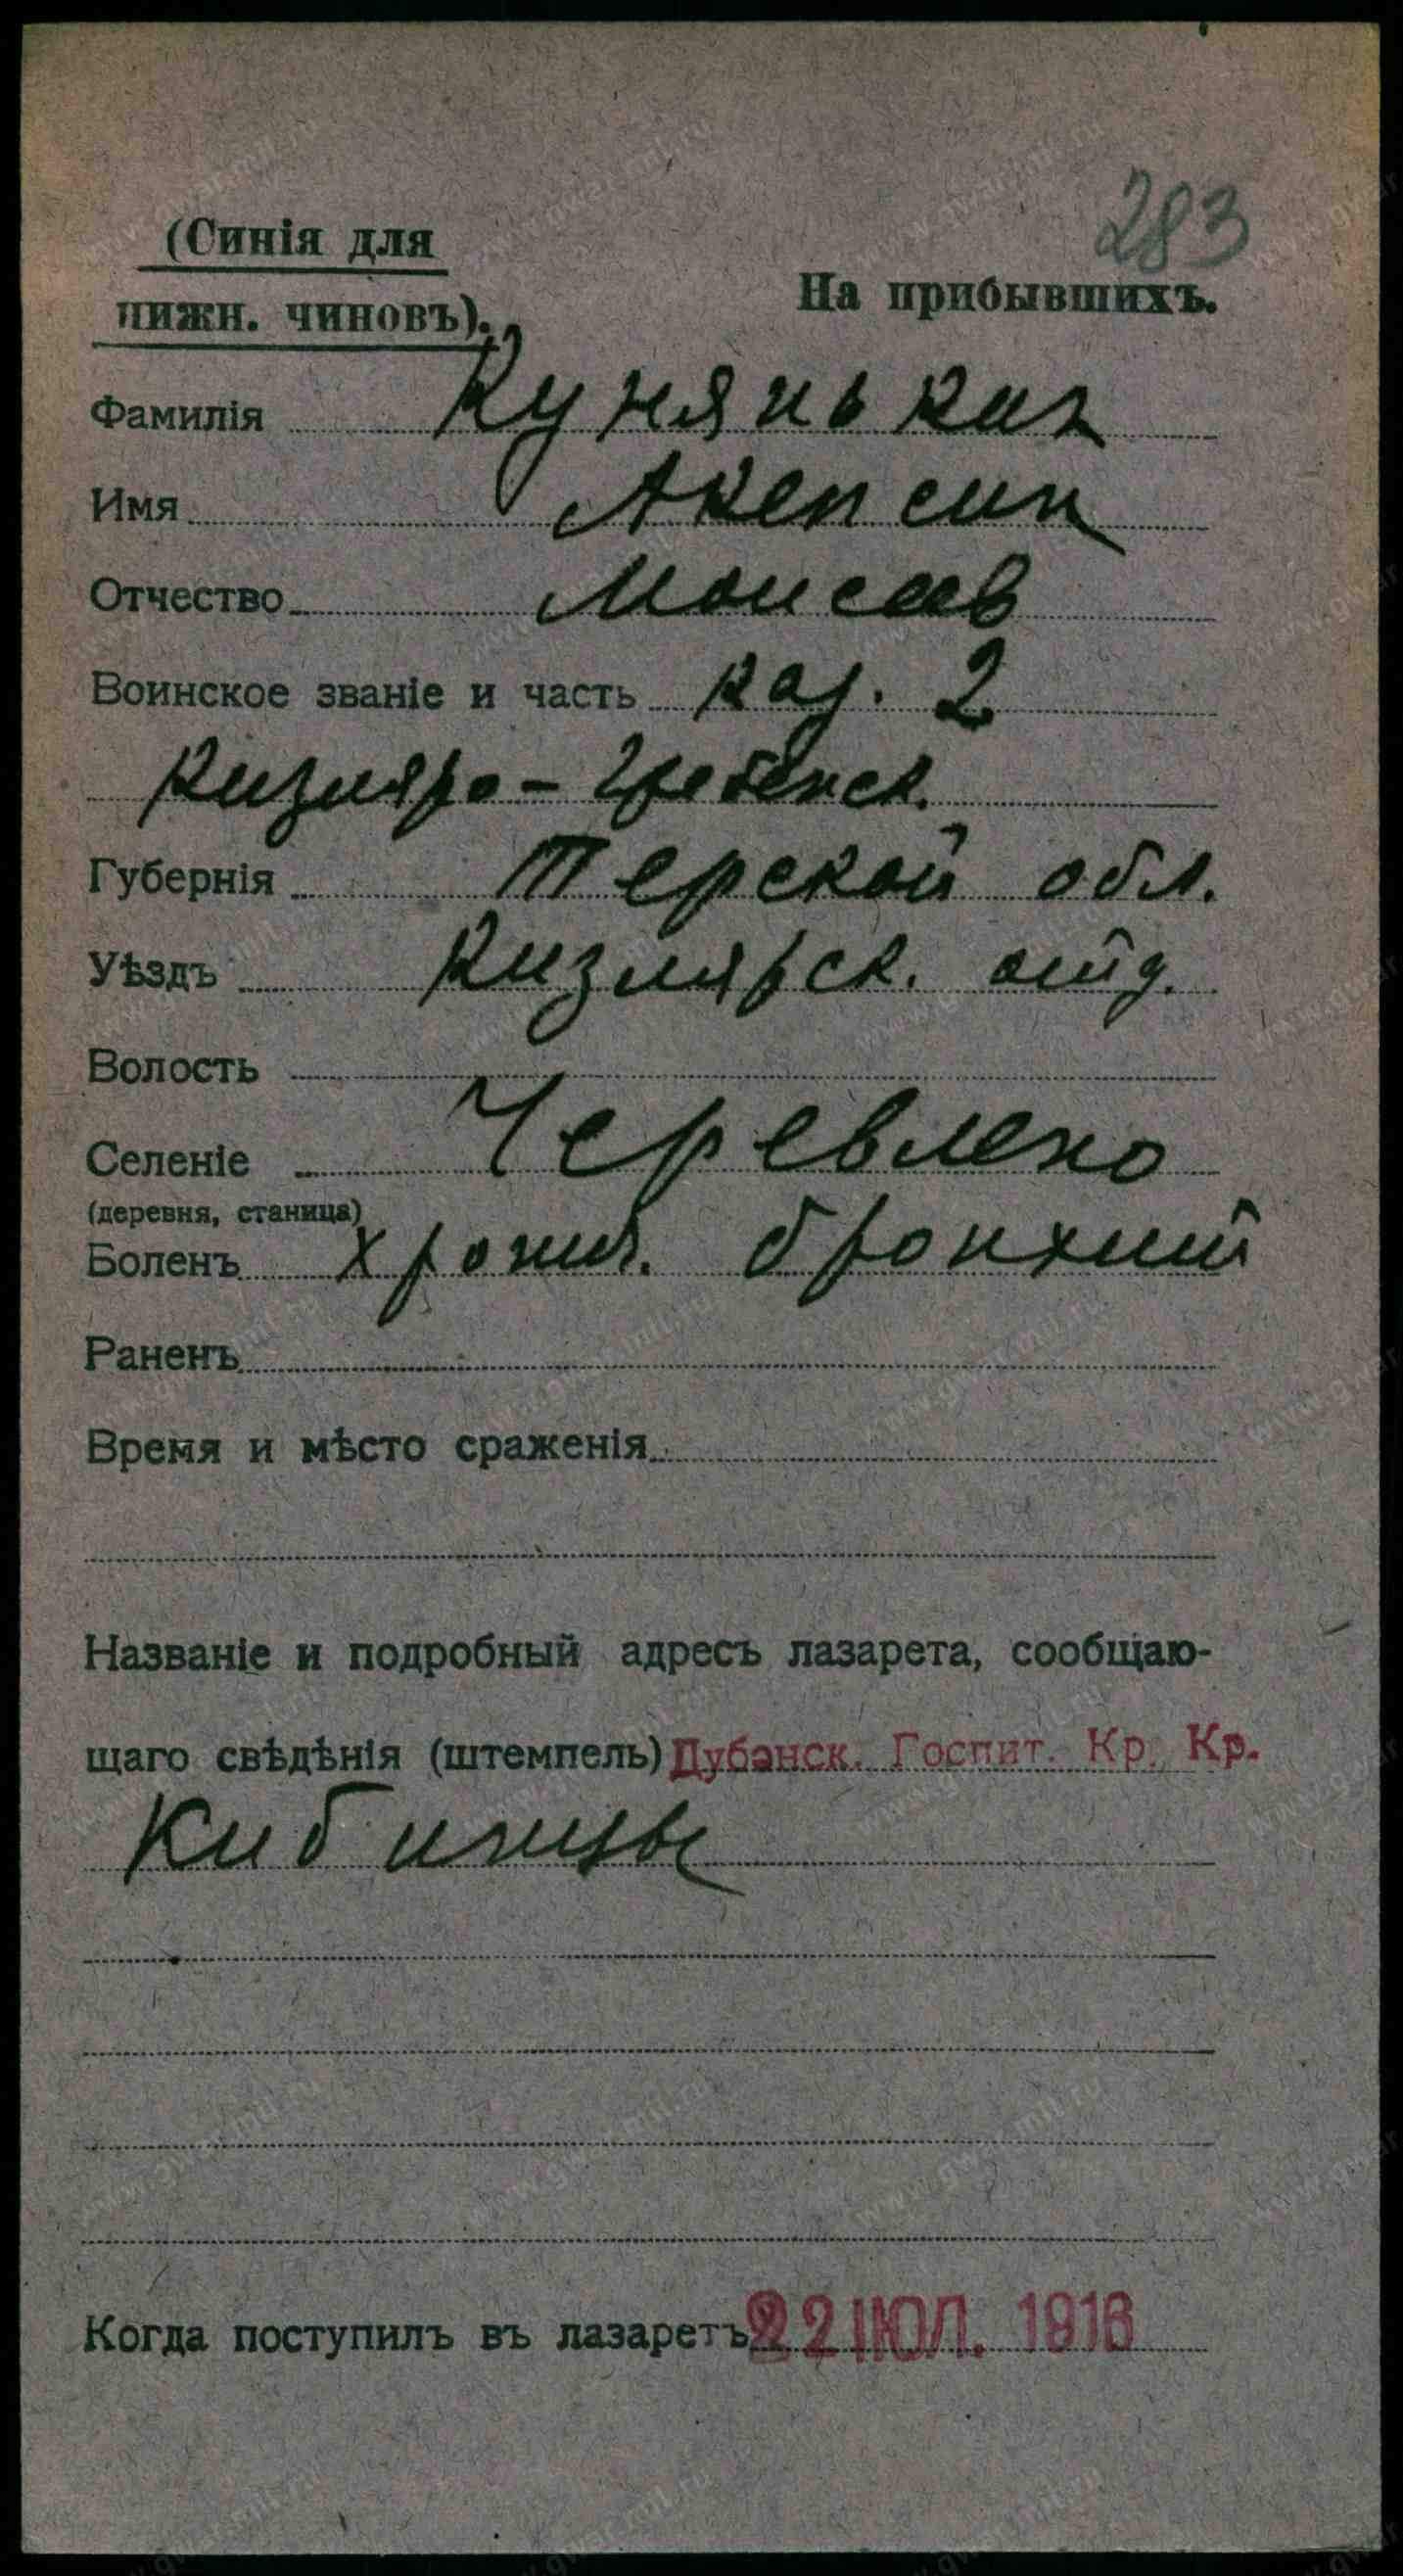 283
(Синія для
нижн. чиновъ).
На прибывшихъ.
Фамилія Кунянькин
Имя Акепсин
Отчество Моисеев
Воинское званіе и часть каз. 2
Кизляро-Гребенск.
Губернія Терской обл.
Уѣздъ Кизлярск. отд.
Волость
Селеніе Червлено
(деревня, станица)
Боленъ хронич. бронхит
Раненъ
Время и мѣсто сраженія
Названіе и подробный адресъ лазарета, сообщаю-
щаго свѣдѣнія (штемпель) Дубэнск. Госпит. Кр. Кр.
Кибинцы
Когда поступилъ въ лазаретъ 22 ІЮЛ. 1916